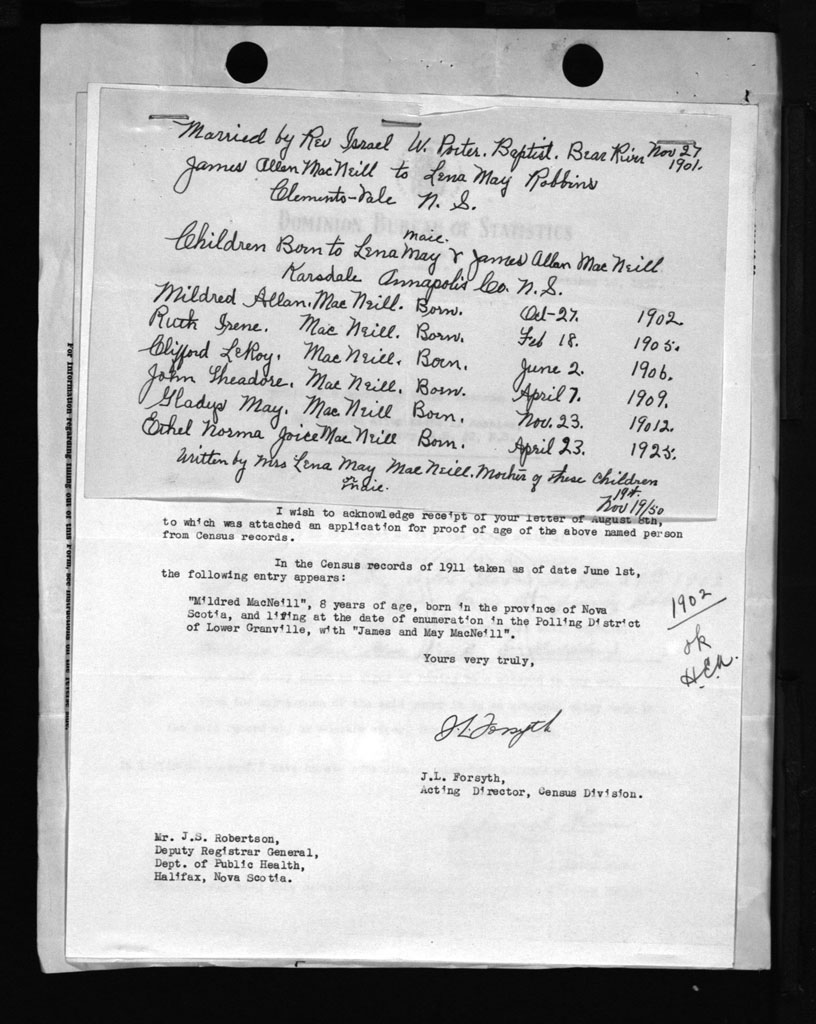 Married by Rev Israel W. Porter. Baptist. Bear River Nov 27
1901.
James Allan MacNeill to Lena May Robbins
Clements-vale N. S.
DOMINION BUREAU OF STATISTICS
Maie.
Children Born to Lena May & James Allan MacNeill
Karsdale Annapolis Co. N. S.
Mildred Allan. MacNeill. Born. Oct-27. 1902.
Ruth Irene. MacNeill. Born. Feb 18. 1905.
Clifford LeRoy. MacNeill. Born. June 2. 1906.
John Theadore. MacNeill. Born. April 7. 1909.
Gladys May. MacNeill Born. Nov. 23. 19012.
Ethel Norma Joice MacNeill Born. April 23. 1925.
Written by Mrs Lena May MacNeill. Mother of these Children
or Maie.
19th.
Nov 19/50
I wish to acknowledge receipt of your letter of August 8th,
to which was attached an application for proof of age of the above named person
from Census records.
In the Census records of 1911 taken as of date June 1st,
the following entry appears:
"Mildred MacNeill", 8 years of age, born in the province of Nova
Scotia, and living at the date of enumeration in the Polling District
of Lower Granville, with "James and May MacNeill".
1902
ok
H.C.A.
Yours very truly,
J.L. Forsyth
J.L. Forsyth,
Acting Director, Census Division.
Mr. J.S. Robertson,
Deputy Registrar General,
Dept. of Public Health,
Halifax, Nova Scotia.